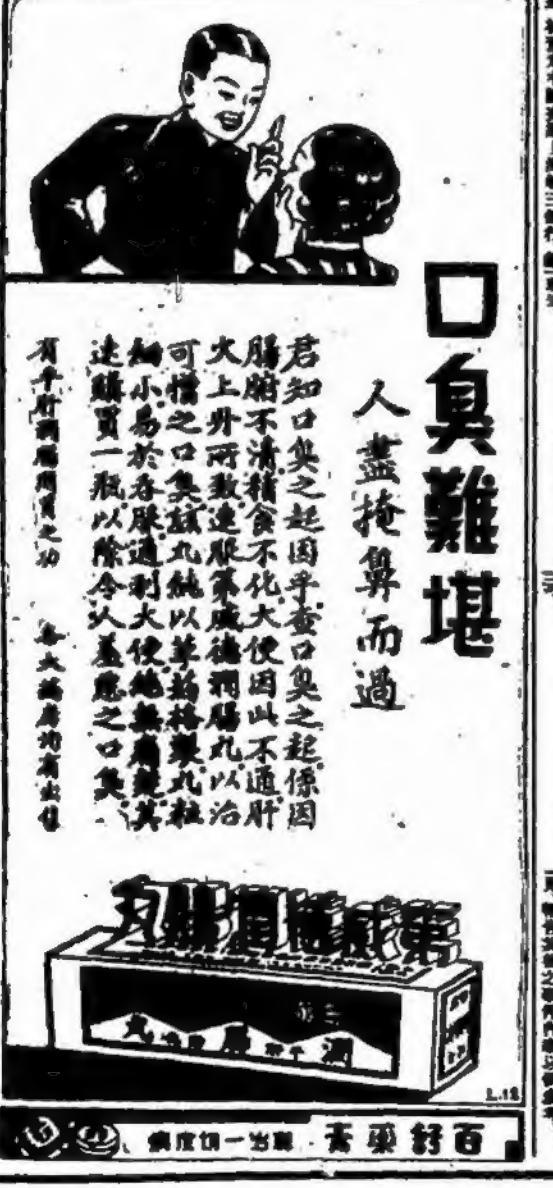 口臭難堪
人盡掩鼻而過
君知口臭之起因乎查口臭之起係因
腸腑不清積食不化大便因此不通肝
火上升所致速服第威德潤腸丸以治
可憎之口臭該丸純以草藥格製丸粒
細小易於吞服通利大便絕無痛楚其
速購買一瓶以除令人羞慙之口臭
有平肝潤腸開胃之功
各大藥房均有出售
第威德潤腸丸
潤腸丸
L.12
百舒藥膏 專治一切皮膚